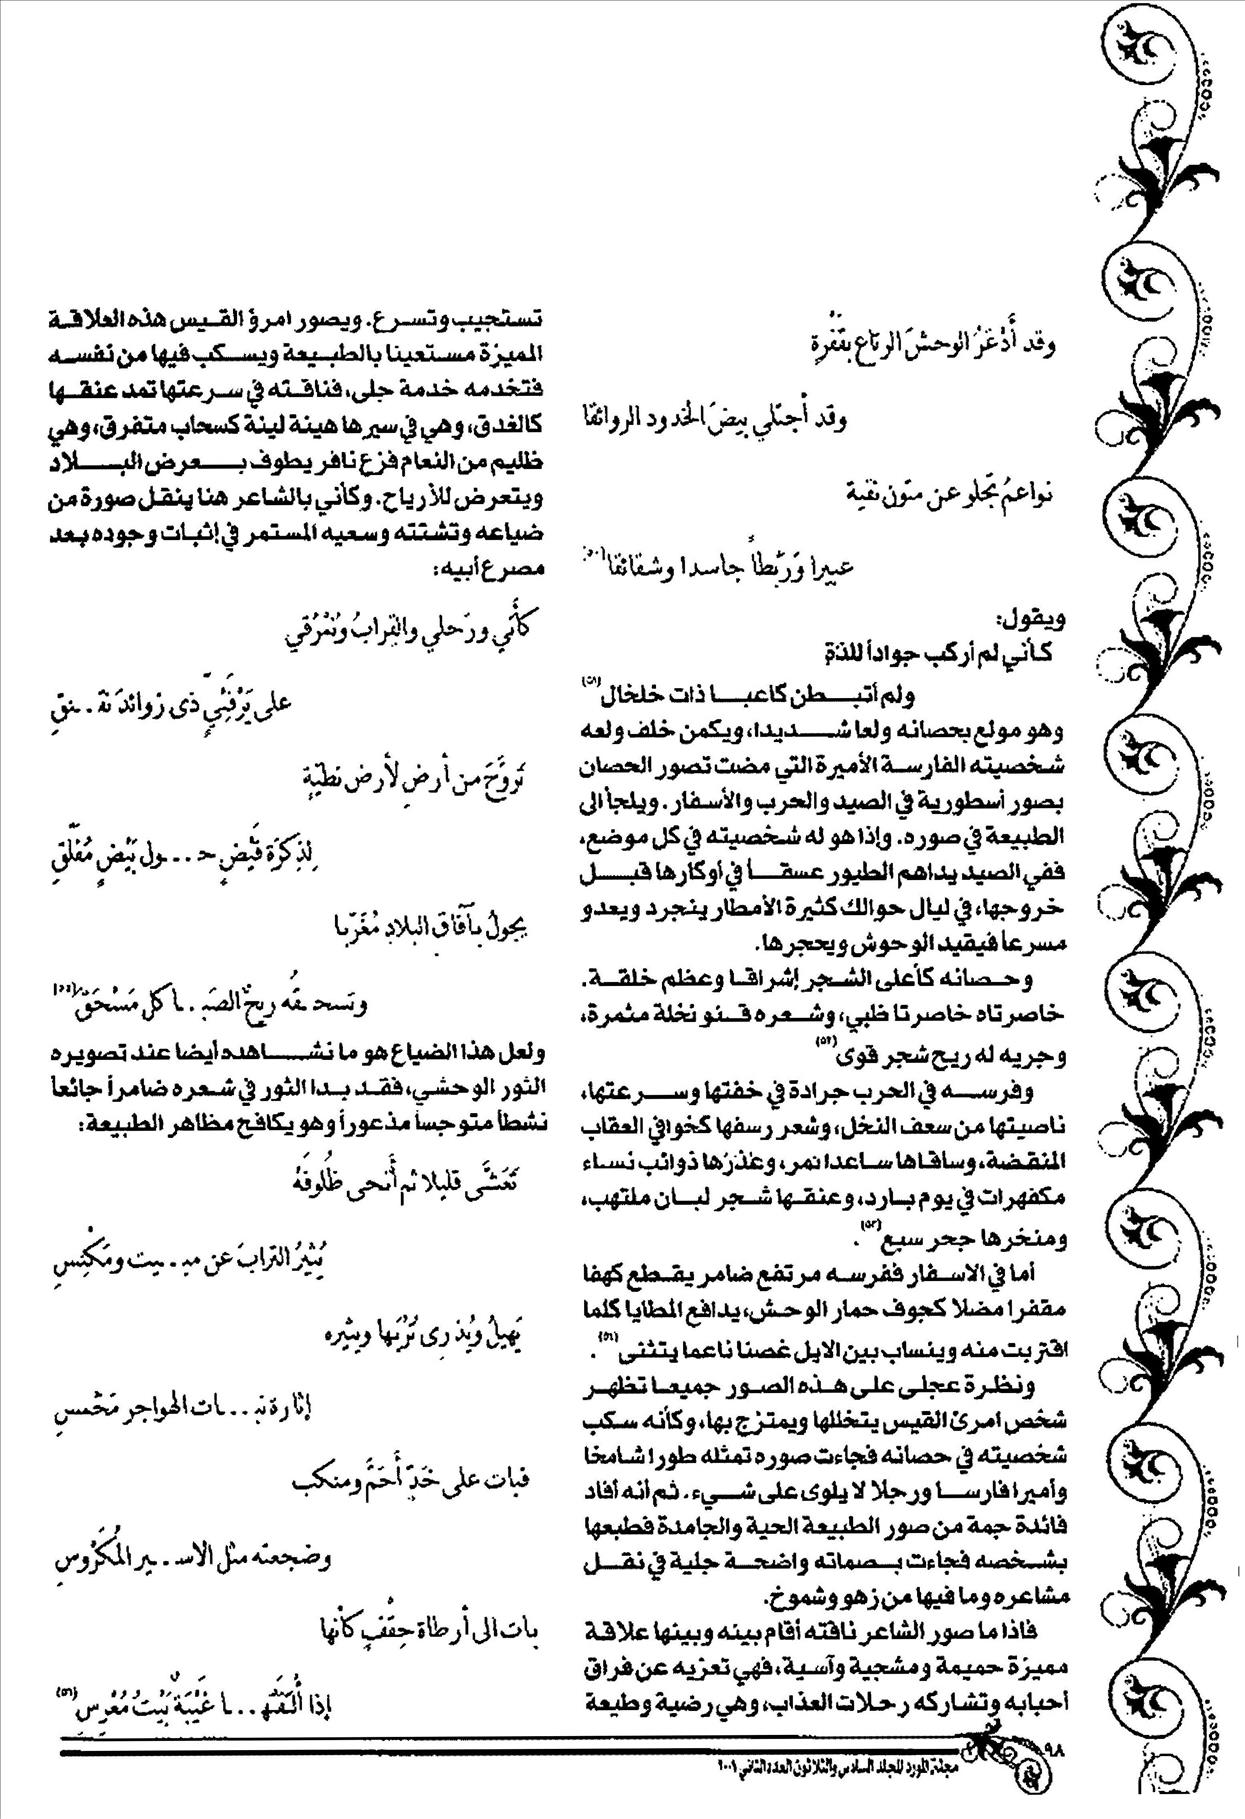 وقد أَذْعَرُ الوحشَ الرتاع بقَفْرةٍ
وقد أجتلي بيضَ الخدود الروائقا
نواعمُ تجلو عن متون نقية
عبيرا ورَيْطاً جاسدا وشقائقا(٥٠)
ويقول:
كأني لم أركب جواداً للذة
ولم أتبطن كاعبا ذات خلخال(٥١)
وهو مولع بحصانه ولعا شديدا، ويكمن خلف ولعه
شخصيته الفارسة الأميرة التي مضت تصور الحصان
بصور أسطورية في الصيد والحرب والأسفار. ويلجأ الى
الطبيعة في صوره. وإذا هو له شخصيته في كل موضع،
ففي الصيد يداهم الطيور عسقاً في أوكارها قبل
خروجها، في ليال حوالك كثيرة الأمطار ينجرد ويعدو
مسرعاً فيقيد الوحوش ويحجرها.
وحصانه كأعلى الشجر إشراقا وعظم خلقة.
خاصرتاه خاصرتا ظبي، وشعره قنو نخلة مثمرة،
وجريه له ريح شجر قوى(٥٢)
وفرسه في الحرب جرادة في خفتها وسرعتها،
ناصيتها من سعف النخل، وشعر رسفها كخوافي العقاب
المنقضة، وساقاها ساعدا نمر، وعُذرُها ذوائب نساء
مكفهرات في يوم بارد، وعنقها شجر لبان ملتهب،
ومنخرها جحر سبع(٥٣).
أما في الاسفار ففرسه مرتفع ضامر يقطع كهفا
مقفرا مضلا كجوف حمار الوحش، يدافع المطايا كلما
اقتربت منه وينساب بين الابل غصنا ناعما يتثنى(٥٤).
ونظرة عجلى على هذه الصور جميعا تظهر
شخص امرئ القيس يتخللها ويمتزج بها، وكأنه سكب
شخصيته في حصانه فجاءت صوره تمثله طورا شامخا
وأميرا فارسا ورجلا لا يلوى على شيء. ثم أنه أفاد
فائدة جمة من صور الطبيعة الحية والجامدة فطبعها
بشخصه فجاءت بصماته واضحة جلية في نقل
مشاعره وما فيها من زهو وشموخ.
فاذا ما صور الشاعر ناقته أقام بينه وبينها علاقة
مميزة حميمة ومشجية وآسية، فهي تعزيه عن فراق
أحبابه وتشاركه رحلات العذاب، وهي رضية وطيعة
تستجيب وتسرع. ويصور امرؤ القيس هذه العلاقة
المميزة مستعينا بالطبيعة ويسكب فيها من نفسه
فتخدمه خدمة جلى، فناقته في سرعتها تمد عنقها
كالغدق، وهي في سيرها هينة لينة كسحاب متفرق، وهي
ظليم من النعام فزع نافر يطوف بعرض البلاد
ويتعرض للأرياح. وكأني بالشاعر هنا ينقل صورة من
ضياعه وتشتته وسعيه المستمر في إثبات وجوده بعد
مصرع أبيه:
كأني ورَحلي والقِرابُ ونُمْرُقي
على يَرْفَئِيٍّ ذى زوائدَ نقـ..ـنقِ
تَروَّحَ من أرضٍ لأرض نطيّةٍ
لِذِكرَة قَيْضٍ حـ...ـول بَيْضٍ مُفَلّقِ
يجولُ بآفاق البلادِ مُغَرّبا
وتسحـقُه ريحُ الصَبـ..ـا كل مَسْحَقْ(٥٥)
ولعل هذا الضياع هو ما نشاهده أيضا عند تصويره
الثور الوحشي، فقد بدا الثور في شعره ضامراً جائعاً
نشطاً متوجساً مذعوراً وهو يكافح مظاهر الطبيعة:
تَعَشَّى قليلا ثم أَنحى ظُلُوفَهُ
يُثيرُ الترابَ عن مبـ..ـيت ومَكْنِسِ
يَهيلُ ويُذرى تُرْبَها ويثيره
إثارة نبـ...ـاث الهواجر مَخْمسِ
فبات على خَدٍّ أَحَمَّ ومنكب
وضجعته مثل الاسـ..ـير المُكَرْوسِ
بات الى أرطاة حِقْفٍ كأنها
إذا أَلثَقَتْهـ...ـا غَيْبَةٌ بَيْتُ مُعْرِسِ(٥٦)
٩٨
مجلة المورد المجلد السادس والثلاثون العدد الثاني ٢٠٠٩